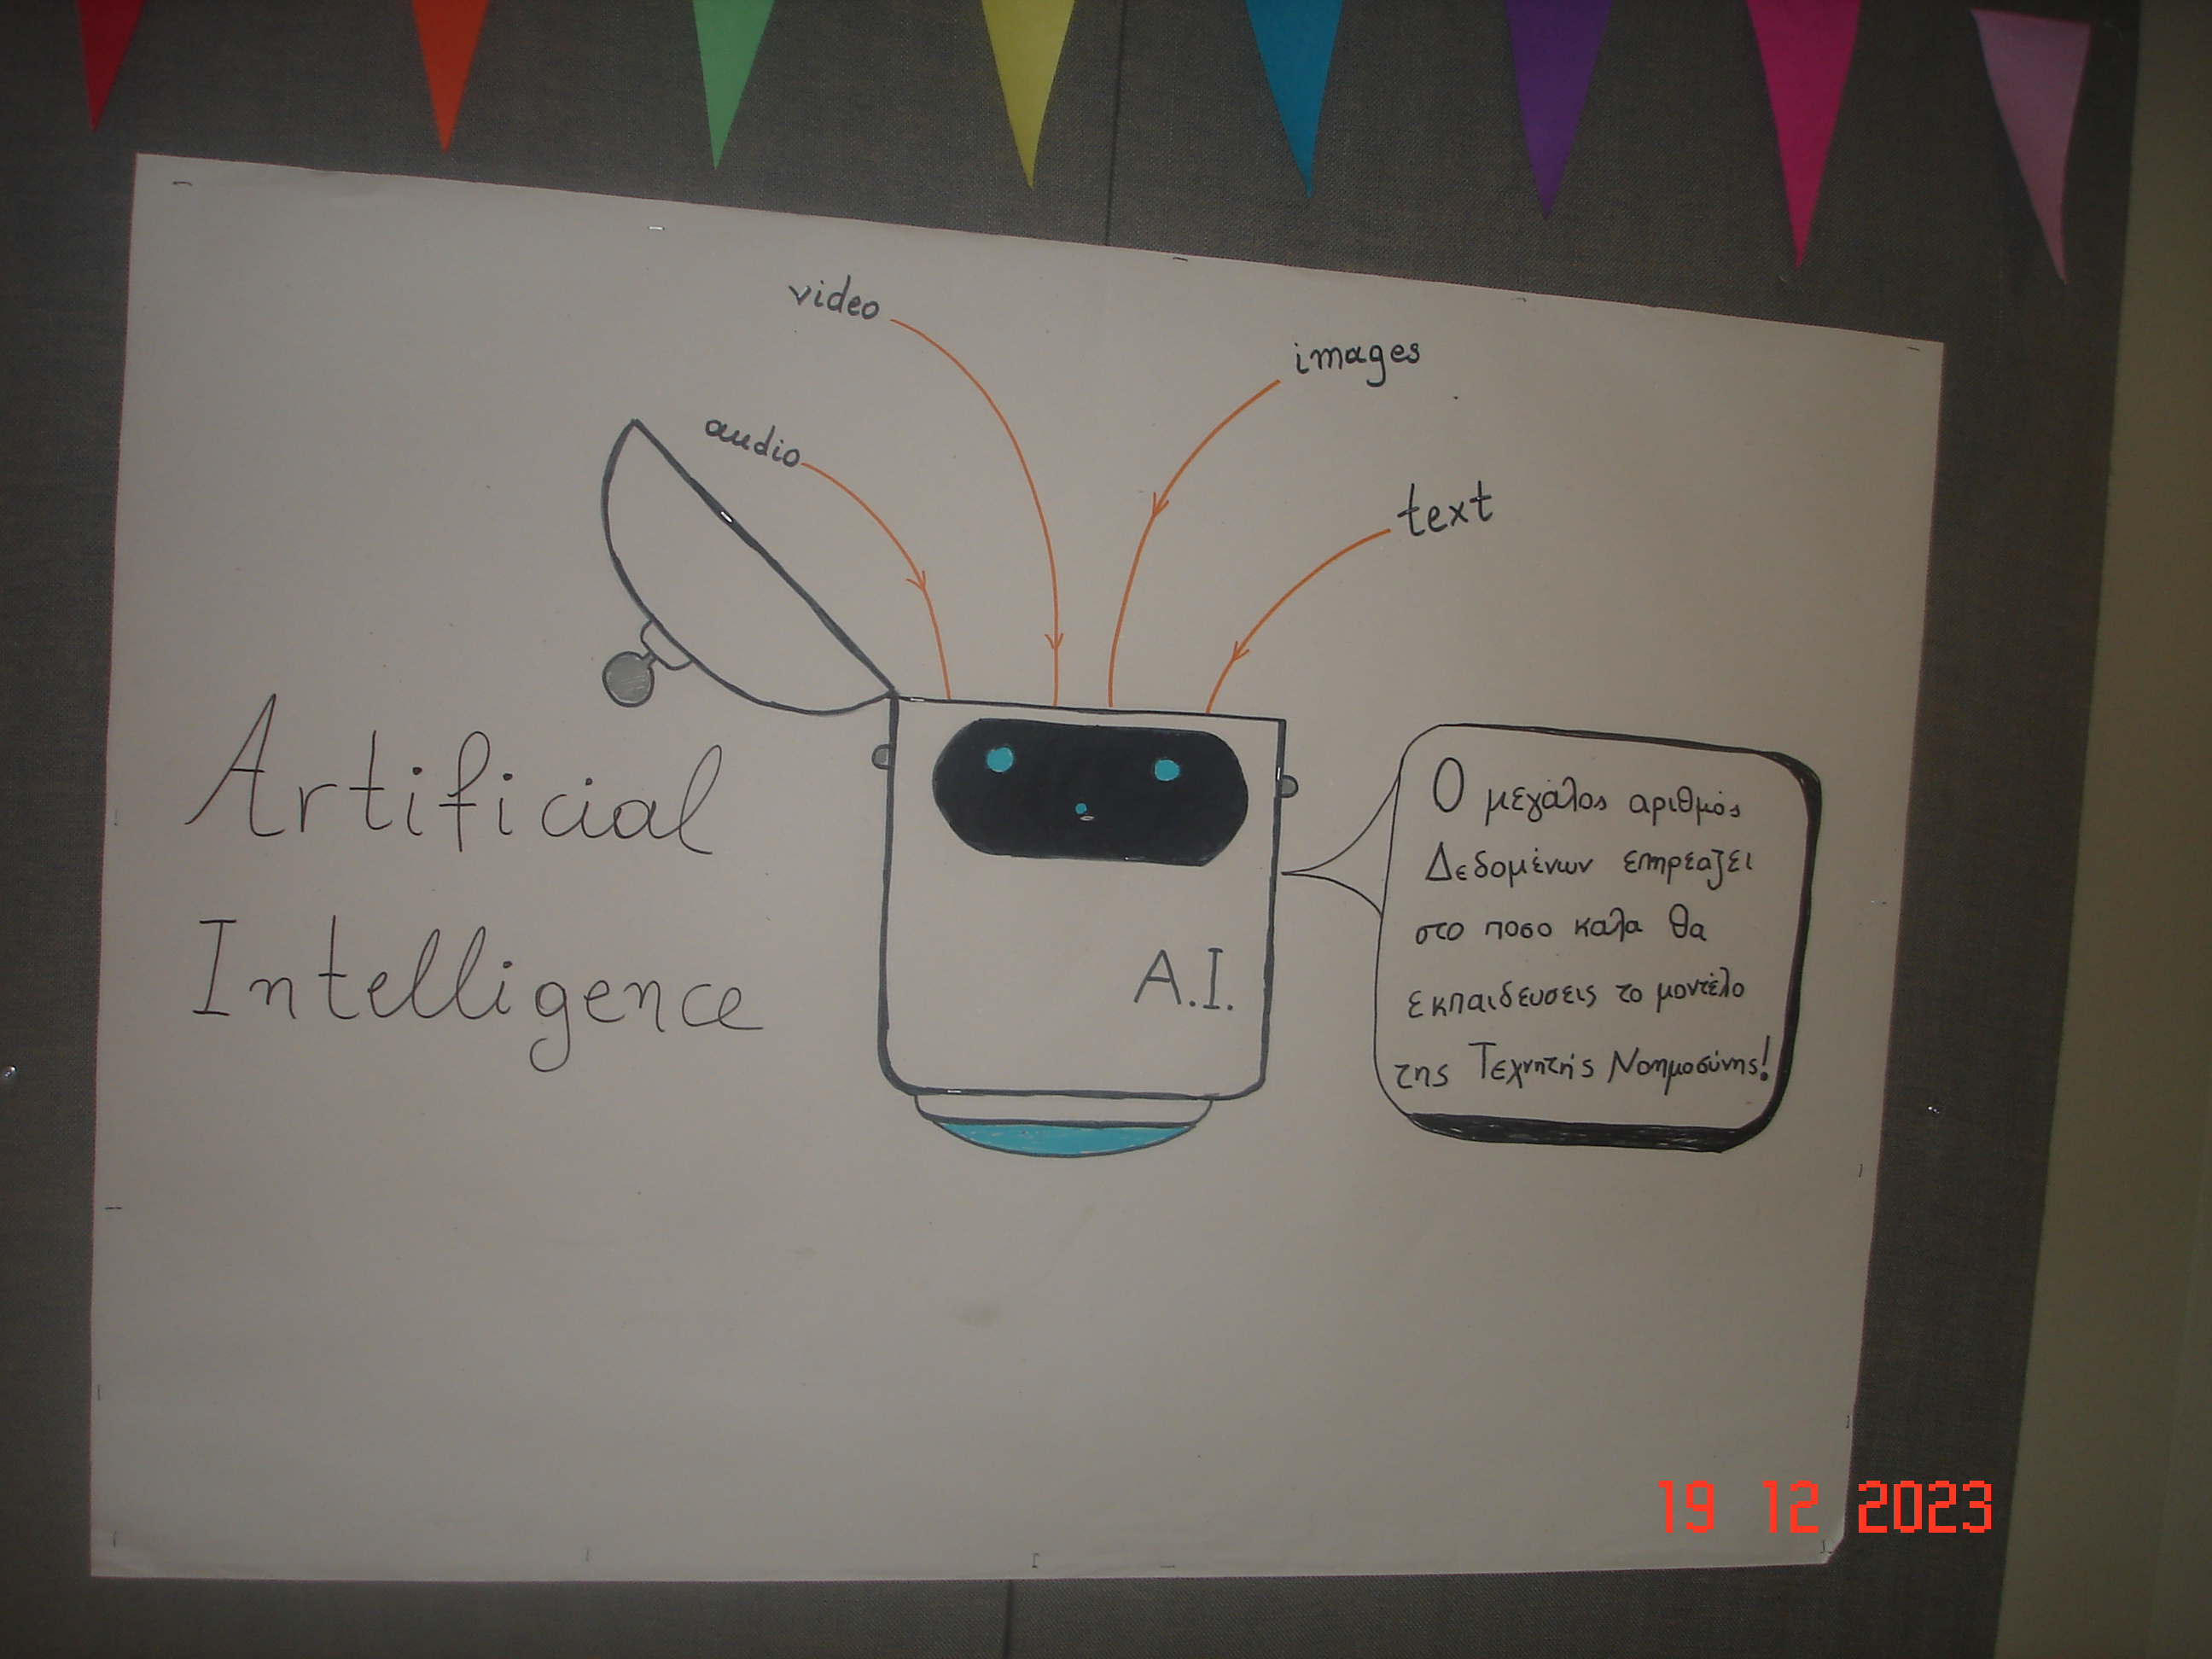 video
images
audio
text
Artificial
Intelligence
A.I.
Ο μεγάλος αριθμός
Δεδομένων επηρεαζει
στο ποσο καλα θα
εκπαιδευσεις το μοντέλο
της Τεχνητής Νοημοσύνης!
19 12 2023